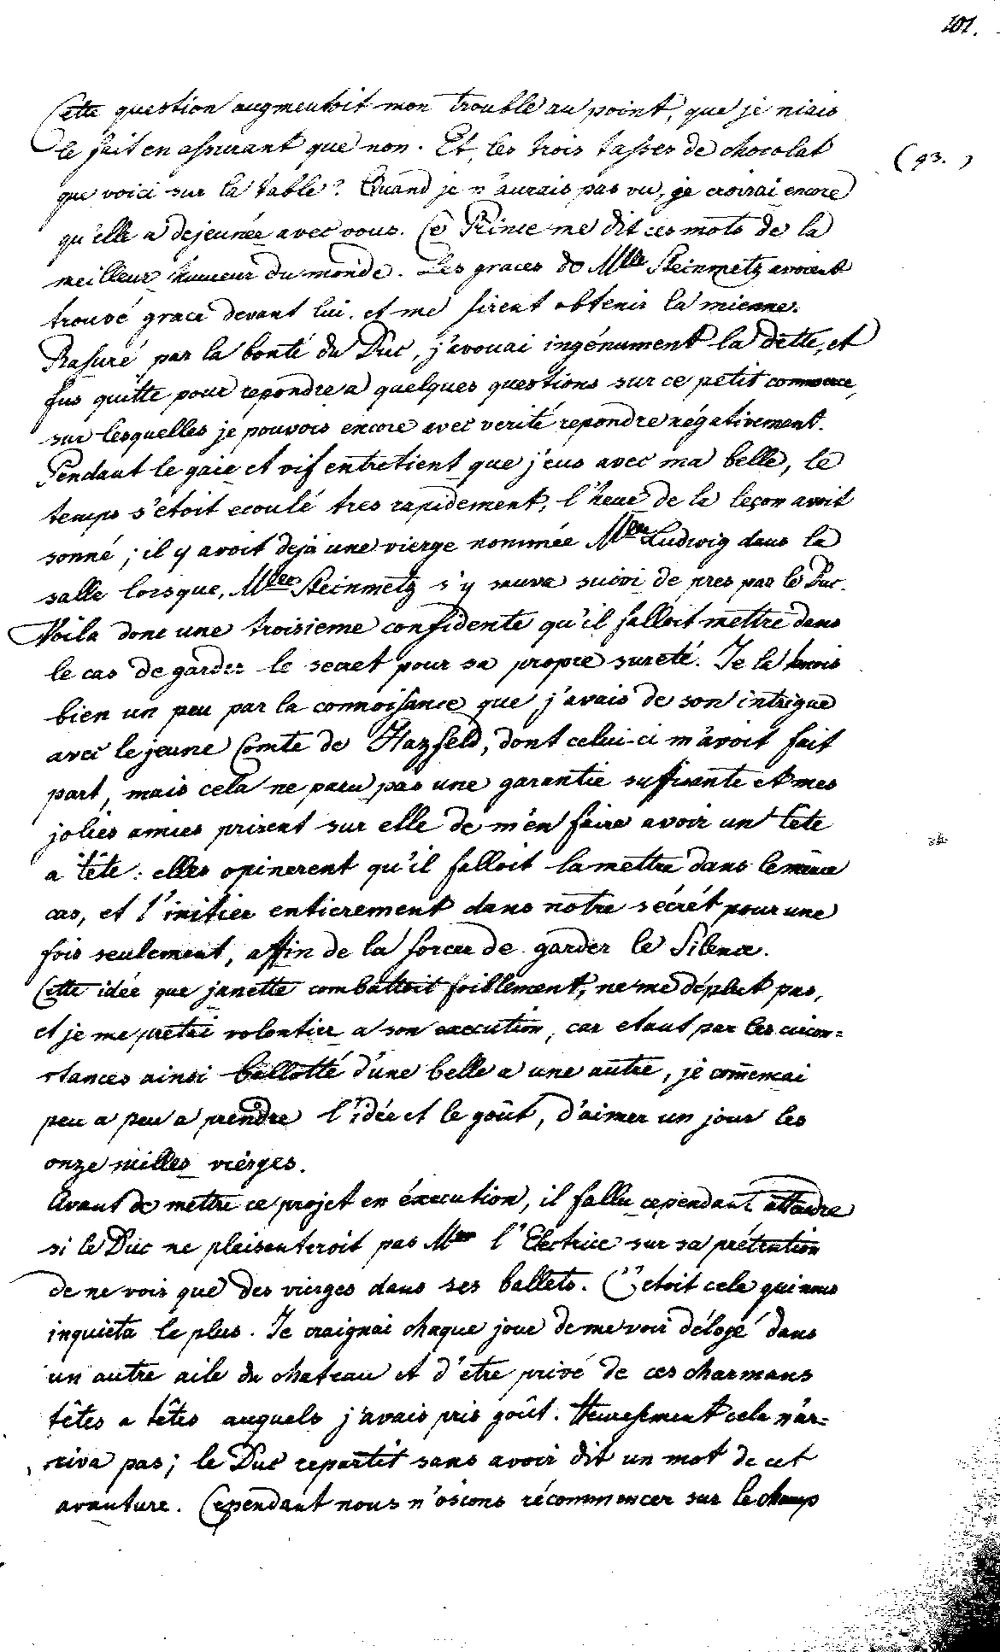 101.
Cette question augmentoit mon trouble au point, que je niais
le fait en assurant que non. Et les trois tasses de chocolat
(93.)
que voici sur la table? Quand je n'aurais pas vu, je croirai encore
qu'elle a dejeunée avec vous. Ce Prince me dit ces mots de la
meilleur humeur du monde. Les graces de Mlle Steinmetz avoient
trouvé grace devant lui. et me firent obtenir la mienne.
Rasuré par la bonté du Duc, j'avouai ingénument la dette, et
fus quitte pour repondre a quelques questions sur ce petit commerce,
sur lesquelles je pouvois encore avec verité repondre négativement.
Pendant le gaie et vif entretient que j'eus avec ma belle, le
temps s'étoit ecoulé tres rapidement, l'heure de la leçon avoit
sonné; il y avoit deja une vierge nommée Mlle Ludwig dans la
salle lorsque, Mlle Steinmetz s'y sauva suivi de pres par le Duc.
Voila donc une troisieme confidente qu'il falloit mettre dans
le cas de garder le secret pour sa propre sureté. Je la tenois
bien un peu par la connoisance que j'avais de son intrigue
avec le jeune Comte de Hazfeld, dont celui-ci m'avoit fait
part, mais cela ne paru pas une garantie suffisante et mes
jolies amies prirent sur elle de m'en faire avoir un tete
a tête: elles opinerent qu'il falloit la mettre dans le même
cas, et l'initier entierement dans notre sécrét pour une
fois seulement, affin de la forcer de garder le Silence.
Cette idée que janette combattoit foiblement, ne me déplut pas,
et je me pretai volontier a son execution, car etant par les circon=
stances ainsi ballotté d'une belle a une autre, je com̄encai
peu a peu a prendre l'idée et le goût, d'aimer un jour les
onze milles vierges.
Avant de mettre ce projet en éxecution, il fallu cependant attendre
si le Duc ne plaisenteroit pas Me l'Electrice sur sa prétention
de ne voir que des vierges dans ses ballets. C'étoit cela qui nous
inquieta le plus. Je craignai chaque jour de me voir délogé dans
un autre aile du chateau et d'etre privé de ces charmans
têtes a têtes auquels j'avais pris goût. Heuresement cela n'ar=
riva pas; le Duc repartit sans avoir dit un mot de cet
avanture. Cependant nous n'osions récommencer sur le champ